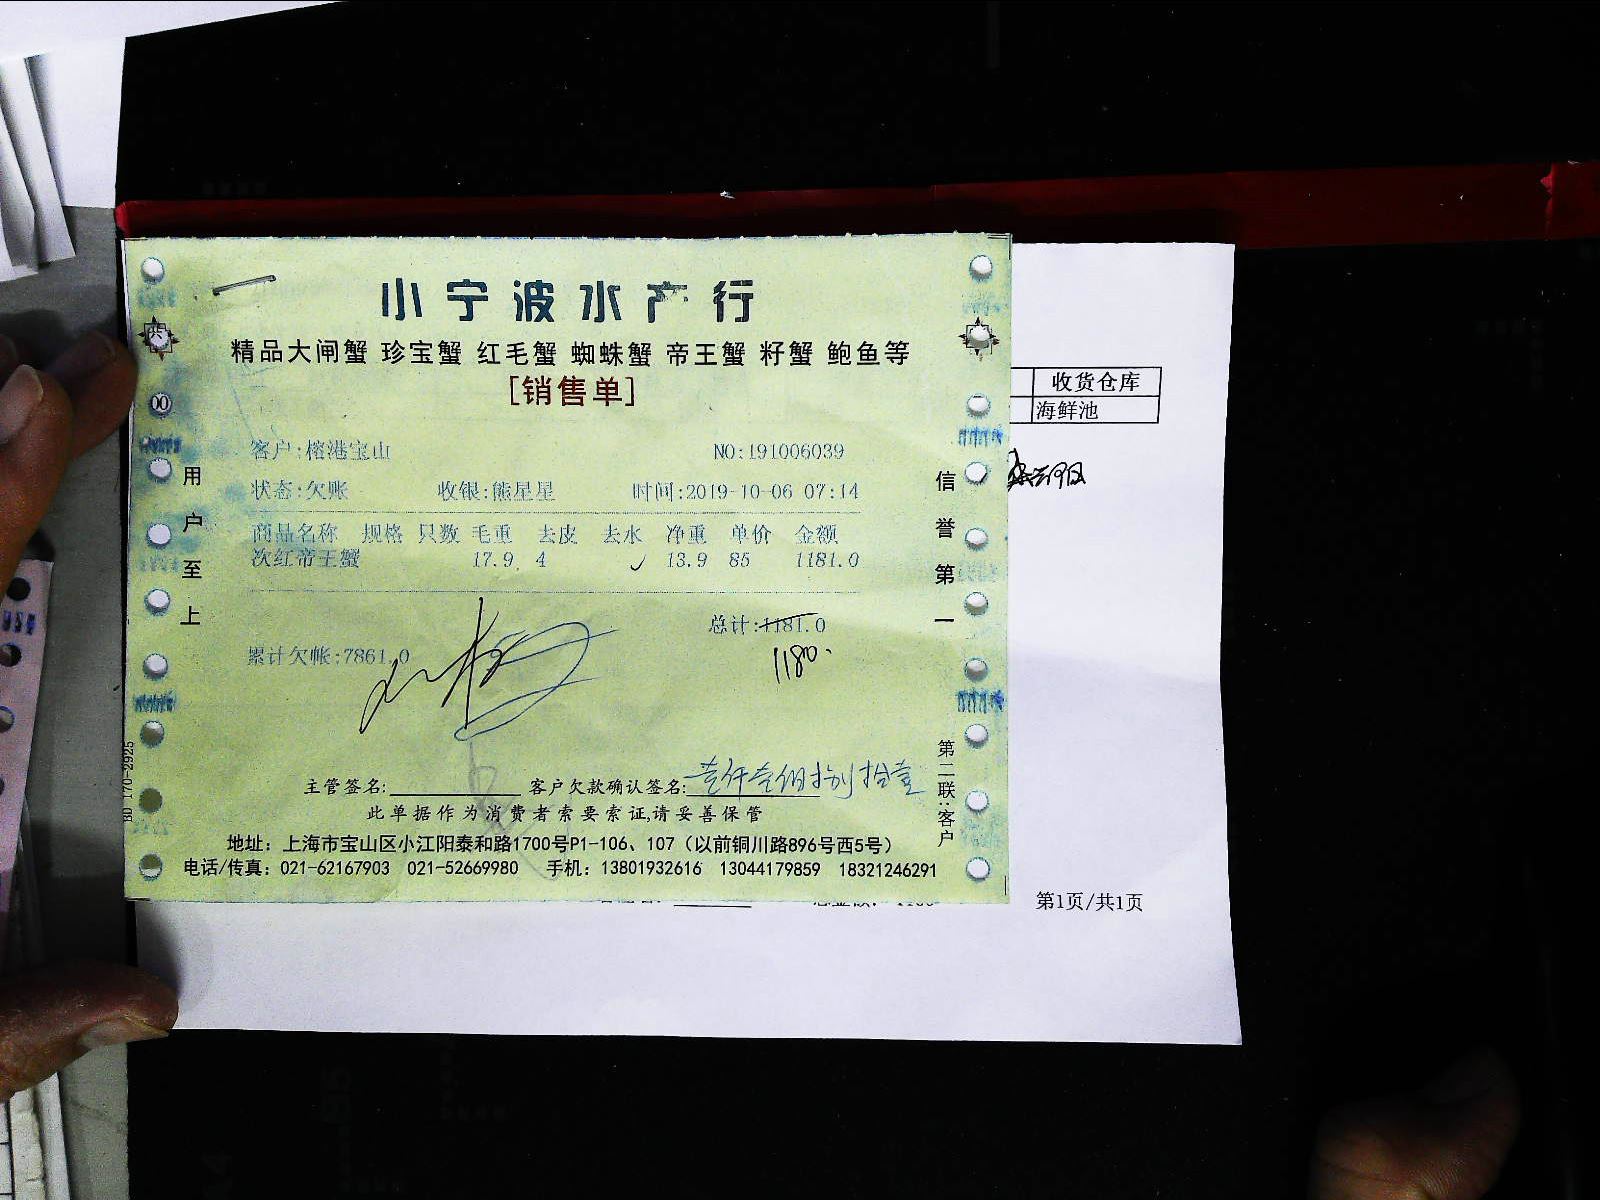 小宁波水产行
精品大闸蟹 珍宝蟹 红毛蟹 蜘蛛蟹 帝王蟹 籽蟹 鲍鱼等
[销售单]
客户:榕港宝山 NO:191006039
状态:欠账 收银:熊星星 时间:2019-10-06 07:14
商品名称 规格 只数 毛重 去皮 去水 净重 单价 金额
次红帝王蟹 17.9 4 13.9 85 1181.0
总计:1181.0
累计欠帐:7861.0
1180.
主管签名: 客户欠款确认签名: 壹仟壹佰捌拾壹
此单据作为消费者索要索证,请妥善保管
地址：上海市宝山区小江阳泰和路1700号P1-106、107（以前铜川路896号西5号）
电话/传真：021-62167903 021-52669980 手机：13801932616 13044179859 18321246291
用户至上
信誉第一
第二联:客户
收货仓库
海鲜池
第1页/共1页